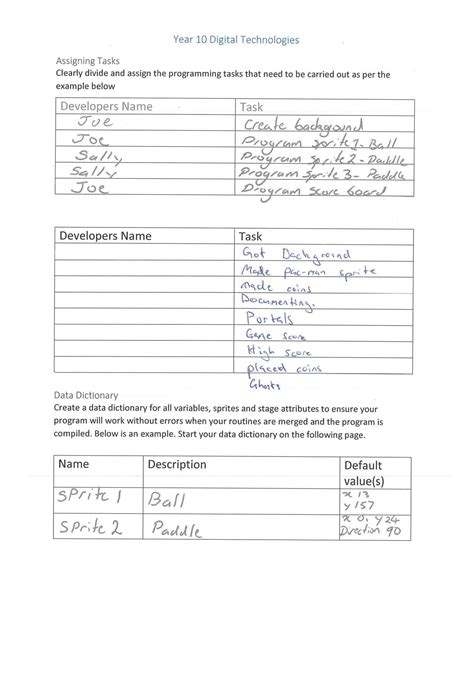 Year 10 Digital Technologies
Assigning Tasks
Clearly divide and assign the programming tasks that need to be carried out as per the
example below
Developers Name Task
Joe Create background
Joe Program sprite 1- Ball
Sally Program sprite 2- Paddle
Sally Program sprite 3- Paddle
Joe Program score board
Developers Name Task
Got Background
Made pac-man sprite
made coins
Documenting.
Portals
Game score
High score
placed coins
Ghosts
Data Dictionary
Create a data dictionary for all variables, sprites and stage attributes to ensure your
program will work without errors when your routines are merged and the program is
compiled. Below is an example. Start your data dictionary on the following page.
Name Description Default
value(s)
Sprite 1 Ball x 13
y 157
Sprite 2 Paddle x 0, y 24
Direction 90